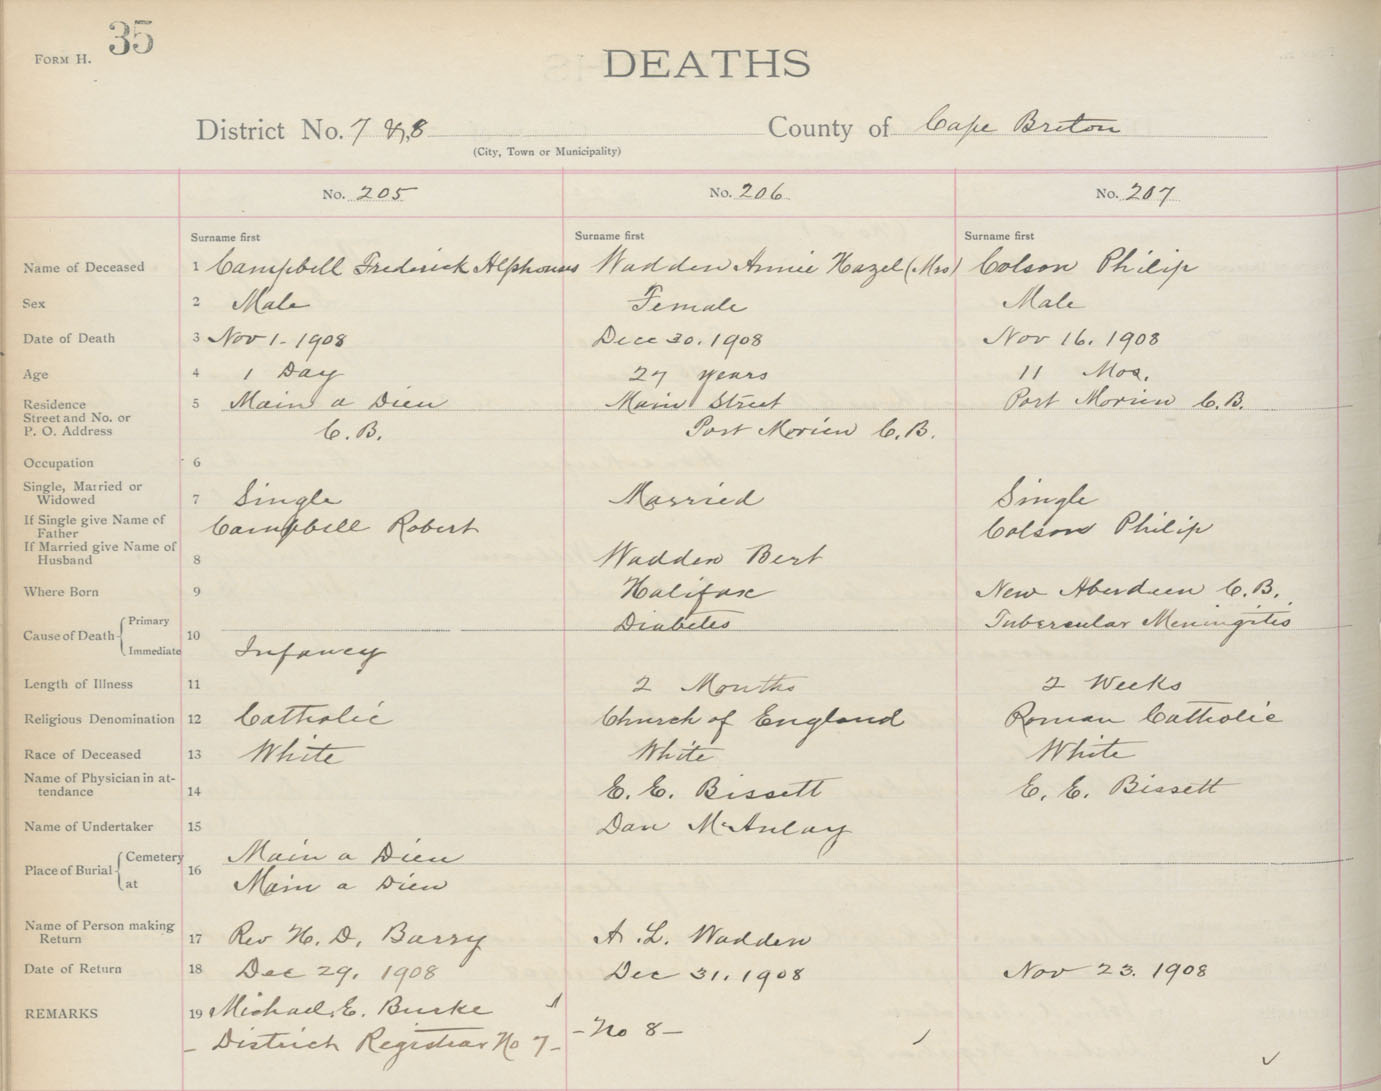 FORM H. 35
DEATHS
District No. 7 & 8 County of Cape Breton
(City, Town or Municipality)
No. 205 No. 206 No. 207
Surname first Surname first Surname first
Name of Deceased 1 Campbell Frederick Alphonsus Wadden Annie Hazel (Mrs) Colson Philip
Sex 2 Male Female Male
Date of Death 3 Nov 1 - 1908 Dec 30. 1908 Nov 16. 1908
Age 4 1 Day 27 years 11 Mos.
Residence 5 Main a Dieu Main Street Port Morien C.B.
Street and No. or
P. O. Address C.B. Port Morien C.B.
Occupation 6
Single, Married or
Widowed 7 Single Married Single
If Single give Name of
Father Campbell Robert Colson Philip
If Married give Name of
Husband 8 Wadden Bert
Where Born 9 Halifax New Aberdeen C.B.
Cause of Death Primary 10 Diabetes Tubercular Meningitis
Immediate Infancy
Length of Illness 11 2 Months 2 Weeks
Religious Denomination 12 Catholic Church of England Roman Catholic
Race of Deceased 13 White White White
Name of Physician in at-
tendance 14 E. E. Bissett E. E. Bissett
Name of Undertaker 15 Dan McAulay
Place of Burial Cemetery 16 Main a Dieu
at Main a Dieu
Name of Person making
Return 17 Rev H. D. Barry A. L. Wadden
Date of Return 18 Dec 29. 1908 Dec 31. 1908 Nov 23. 1908
REMARKS 19 Michael E. Burke
- District Registrar No 7 - - No 8 -